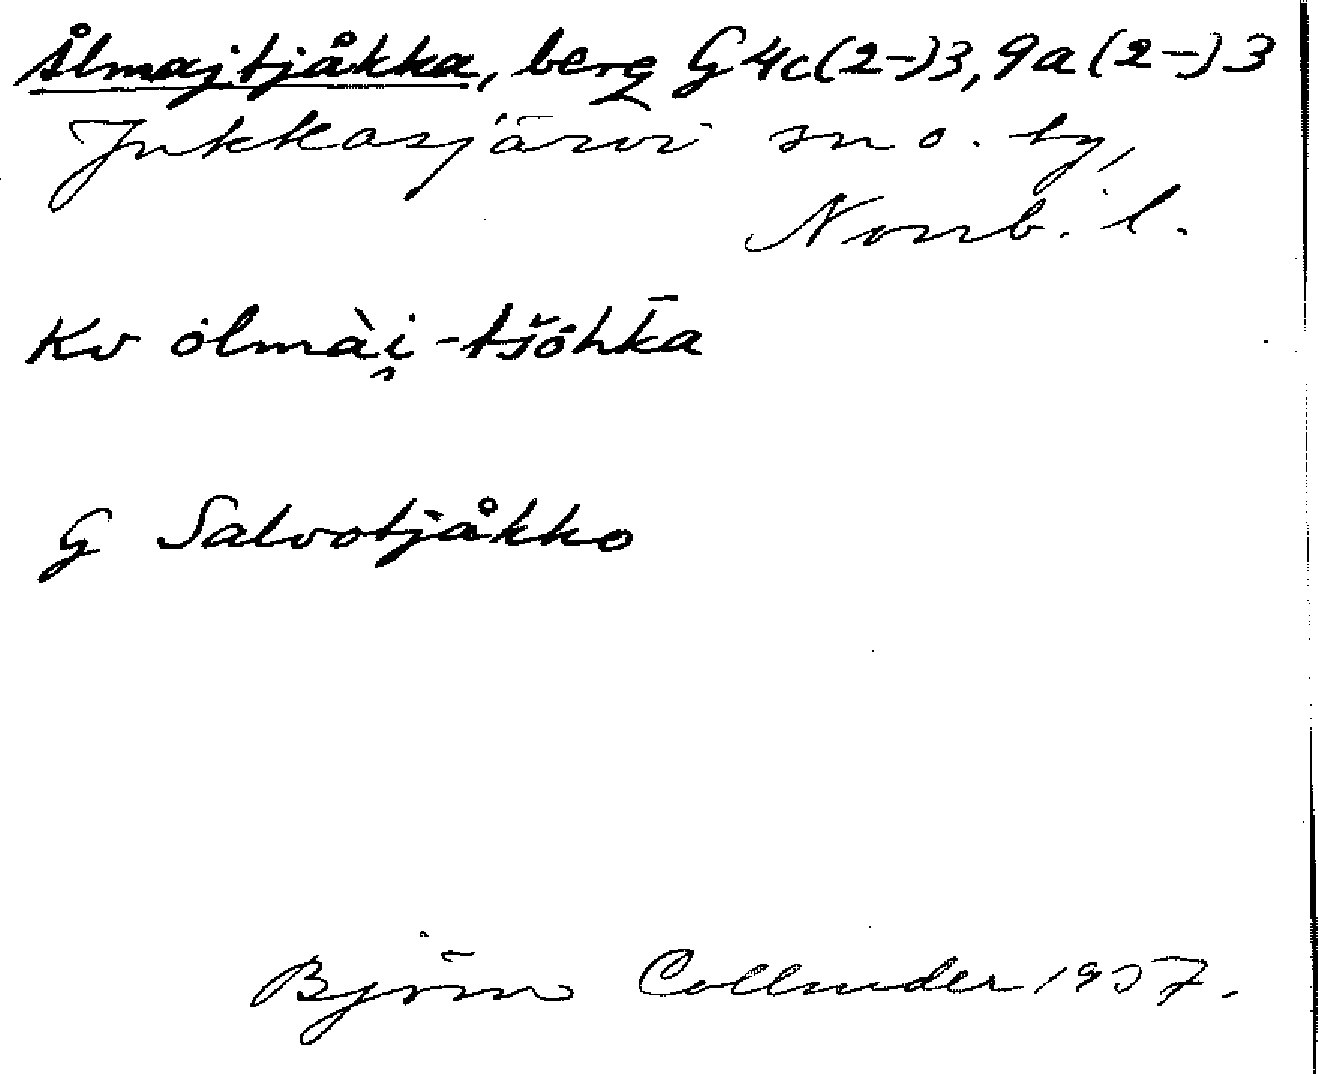 Ålmajtjåkka, berg G4c(2-)3,9a(2-)3
Jukkasjärvi sn o. ty,
Norrb. l.
Kv ȯlmài̯-tšȯh̄ka
G Salvotjåkko
Björn Collinder 1957.